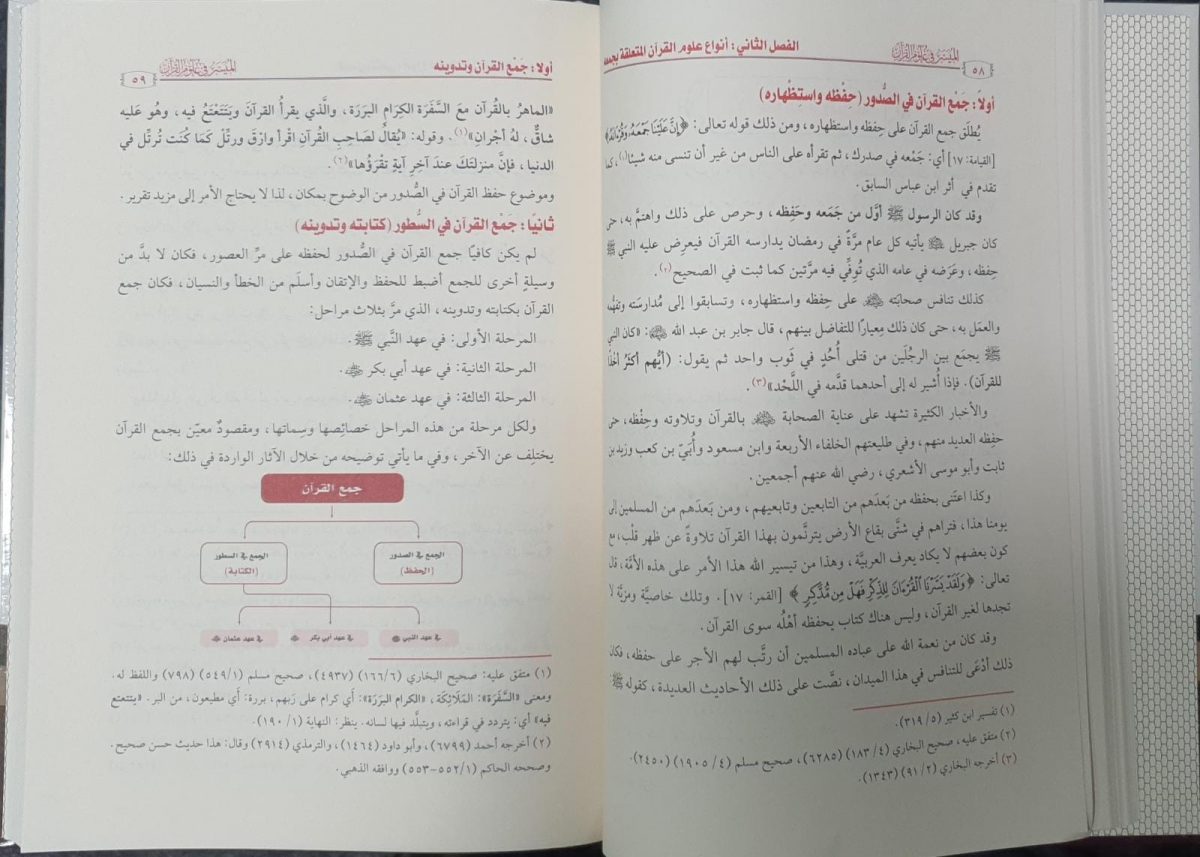 الميسر في علوم القرآن
٥٨
الفصل الثاني: أنواع علوم القرآن المتعلقة بجمعه
أولاً: جَمْع القرآن في الصُّدور (حِفْظه واستِظْهاره)
يُطلَق جمع القرآن على حِفظه واستظهاره، ومن ذلك قوله تعالى: ﴿إِنَّ عَلَيْنَا جَمْعَهُ وَقُرْءَانَهُ﴾
[القيامة: ١٧] أي: جَمْعه في صدرك، ثم تقرأه على الناس من غير أن تنسى منه شيئًا(١)، كما
تقدم في أثر ابن عباس السابق.
وقد كان الرسول ﷺ أوَّل من جَمَعه وحَفِظه، وحرص على ذلك واهتمَّ به، حتى
كان جبريل ﷺ يأتيه كل عام مرَّةً في رمضان يدارسه القرآن فيعرِض عليه النبي ﷺ
حِفظه، وعَرَضه في عامه الذي تُوفِّي فيه مرَّتين كما ثبت في الصحيح(٢).
كذلك تنافس صحابَته ﷺ على حِفظه واستظهاره، وتسابقوا إلى مُدارسَته وتفهُّمه
والعمَل به، حتى كان ذلك مِعيارًا للتفاضل بينهم، قال جابر بن عبد الله ﷺ: «كان النبي
ﷺ يجمَع بين الرجُلَين من قتلى أُحُدٍ في ثَوب واحد ثم يقول: (أيُّهم أكثَرُ أخْذًا
للقرآن). فإذا أُشير له إلى أحدهما قدَّمه في اللَّحْد»(٣).
والأخبار الكثيرة تشهد على عناية الصحابة ﷺ بالقرآن وتلاوته وحِفْظه، حتى
حفِظه العديد منهم، وفي طليعتهم الخلفاء الأربعة وابن مسعود وأُبَيّ بن كعب وزيد بن
ثابت وأبو موسى الأشعري، رضي الله عنهم أجمعين.
وكذا اعتَنى بحفظه من بَعدَهم من التابعين وتابعيهم، ومن بَعدَهم من المسلمين إلى
يومنا هذا، فتراهم في شتَّى بقاع الأرض يترنَّمون بهذا القرآن تلاوةً عن ظهر قلْب، مع
كون بعضهم لا يكاد يعرف العربيَّة، وهذا من تيسير الله هذا الأمر على هذه الأمَّة، قال
تعالى: ﴿وَلَقَدْ يَسَّرْنَا ٱلْقُرْءَانَ لِلذِّكْرِ فَهَلْ مِن مُّدَّكِرٍ﴾ [القمر: ١٧]. وتلك خاصيَّة ومزيَّة لا
تجدها لغير القرآن، وليس هناك كتاب يحفظه أهْلُه سوى القرآن.
وقد كان من نعمة الله على عباده المسلمين أن رتَّب لهم الأجر على حفظه، فكان
ذلك أدْعَى للتنافس في هذا الميدان، نصَّت على ذلك الأحاديث العديدة، كقوله ﷺ
(١) تفسير ابن كثير (٥/ ٣١٩).
(٢) متفق عليه، صحيح البخاري (٤/ ١٨٣) (٦٢٨٥)، صحيح مسلم (٤/ ١٩٠٥) (٢٤٥٠).
(٣) أخرجه البخاري (٢/ ٩١) (١٣٤٣).
أولا: جَمْع القرآن وتدوينه
الميسر في علوم القرآن
٥٩
«الماهرُ بالقُرآن معَ السَّفَرَة الكِرَامِ البرَرَة، والَّذي يقرأُ القرآنَ ويَتَتَعْتَعُ فيه، وهُو عَليه
شاقٌّ، لهُ أجْرانِ»(١). وقوله: «يُقالُ لصَاحِبِ القُرآنِ اقْرأ وارْقَ ورتِّلْ كمَا كُنْت تُرتِّل في
الدنيا، فإنَّ منزلتَكَ عندَ آخِرِ آيةٍ تقْرَؤُها»(٢).
وموضوع حفظ القرآن في الصُّدور من الوضوح بمكان، لذا لا يحتاج الأمر إلى مزيد تقرير.
ثانيًا: جَمْع القرآن في السُّطور (كتابته وتدوينه)
لم يكن كافيًا جمع القرآن في الصُّدور لحفظه على مرِّ العصور، فكان لا بدَّ من
وسيلةٍ أخرى للجمع أضبط للحفظ والإتقان وأسلَم من الخطأ والنسيان، فكان جمع
القرآن بكتابته وتدوينه، الذي مرَّ بثلاث مراحل:
المرحلة الأولى: في عهد النَّبي ﷺ.
المرحلة الثانية: في عهد أبي بكر ﷺ.
المرحلة الثالثة: في عهد عثمان ﷺ.
ولكل مرحلة من هذه المراحل خصائِصها وسِماتها، ومقصودٌ معيّن بجمع القرآن
يختلِف عن الآخر، وفي ما يأتي توضيحه من خلال الآثار الواردة في ذلك:
جمع القرآن
الجمع في الصدور
(الحفظ)
الجمع في السطور
(الكتابة)
في عهد النبي ﷺ
في عهد أبي بكر ﷺ
في عهد عثمان ﷺ
(١) متفق عليه: صحيح البخاري (١٦٦/٦) (٤٩٣٧)، صحيح مسلم (٥٤٩/١) (٧٩٨) واللفظ له.
ومعنى «السَّفَرَة»: المَلَائِكَة، «الكِرام البَرَرَة»: أَي كرام على رَبهم، بررة: أَي مطيعون، من البر. «يتتعتع
فيه» أي: يتردد في قراءته، ويتبلَّد فيها لسانه. ينظر: النهاية (١/ ١٩٠).
(٢) أخرجه أحمد (٦٧٩٩)، وأبو داود (١٤٦٤)، والترمذي (٢٩١٤) وقال: هذا حديث حسن صحيح.
وصححه الحاكم (١/ ٥٥٢-٥٥٣) ووافقه الذهبي.